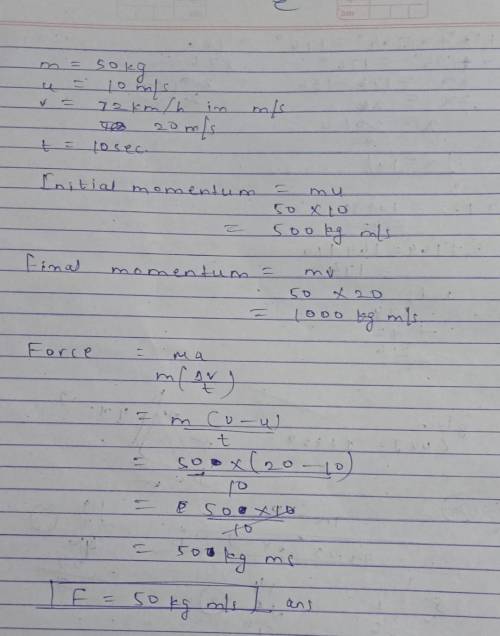 m = 50kg
u = 10 m/s
v = 72 km/h in m/s
20 m/s
t = 10 sec.
Initial momentum = mu
50 × 10
= 500 kg m/s
Final momentum = mv
50 × 20
= 1000 kg m/s
Force = ma
m(Δv/t)
= m (v - u)
t
= 50 × (20 - 10)
10
= 50 × 10
10
= 50 kg ms
F = 50 kg m/s ans